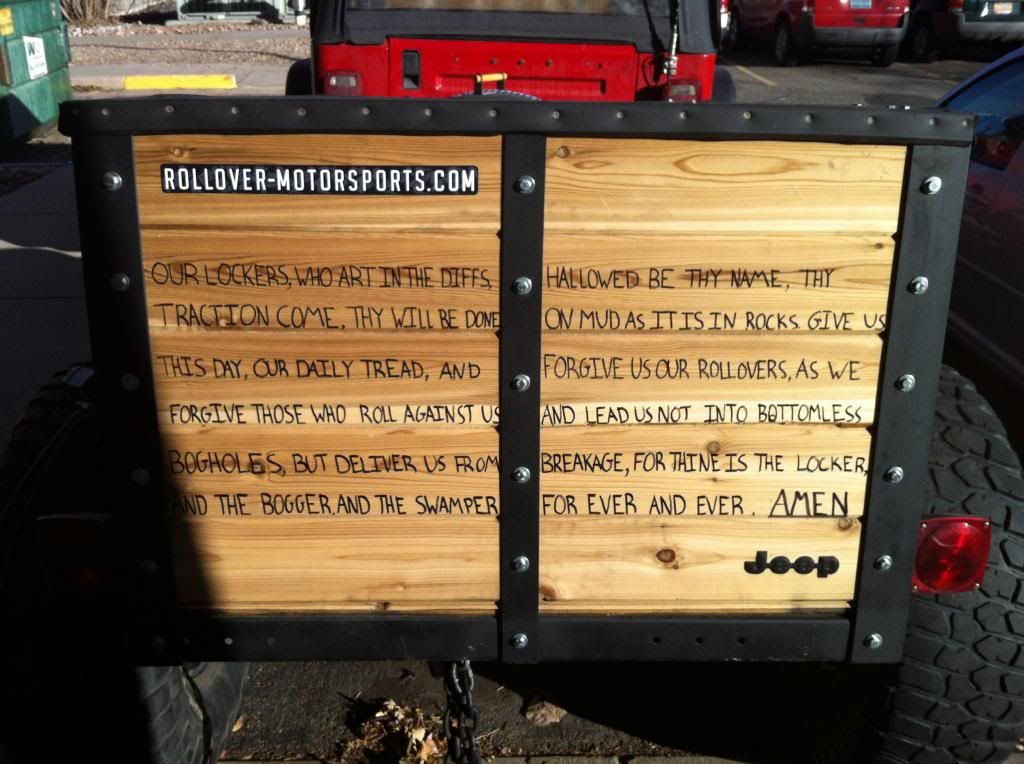 ROLLOVER-MOTORSPORTS.COM
OUR LOCKERS, WHO ART IN THE DIFFS, HALLOWED BE THY NAME, THY
TRACTION COME, THY WILL BE DONE ON MUD AS IT IS IN ROCKS. GIVE US
THIS DAY, OUR DAILY TREAD, AND FORGIVE US OUR ROLLOVERS, AS WE
FORGIVE THOSE WHO ROLL AGAINST US AND LEAD US NOT INTO BOTTOMLESS
BOGHOLES, BUT DELIVER US FROM BREAKAGE, FOR THINE IS THE LOCKER,
AND THE BOGGER, AND THE SWAMPER FOR EVER AND EVER. AMEN
Jeep